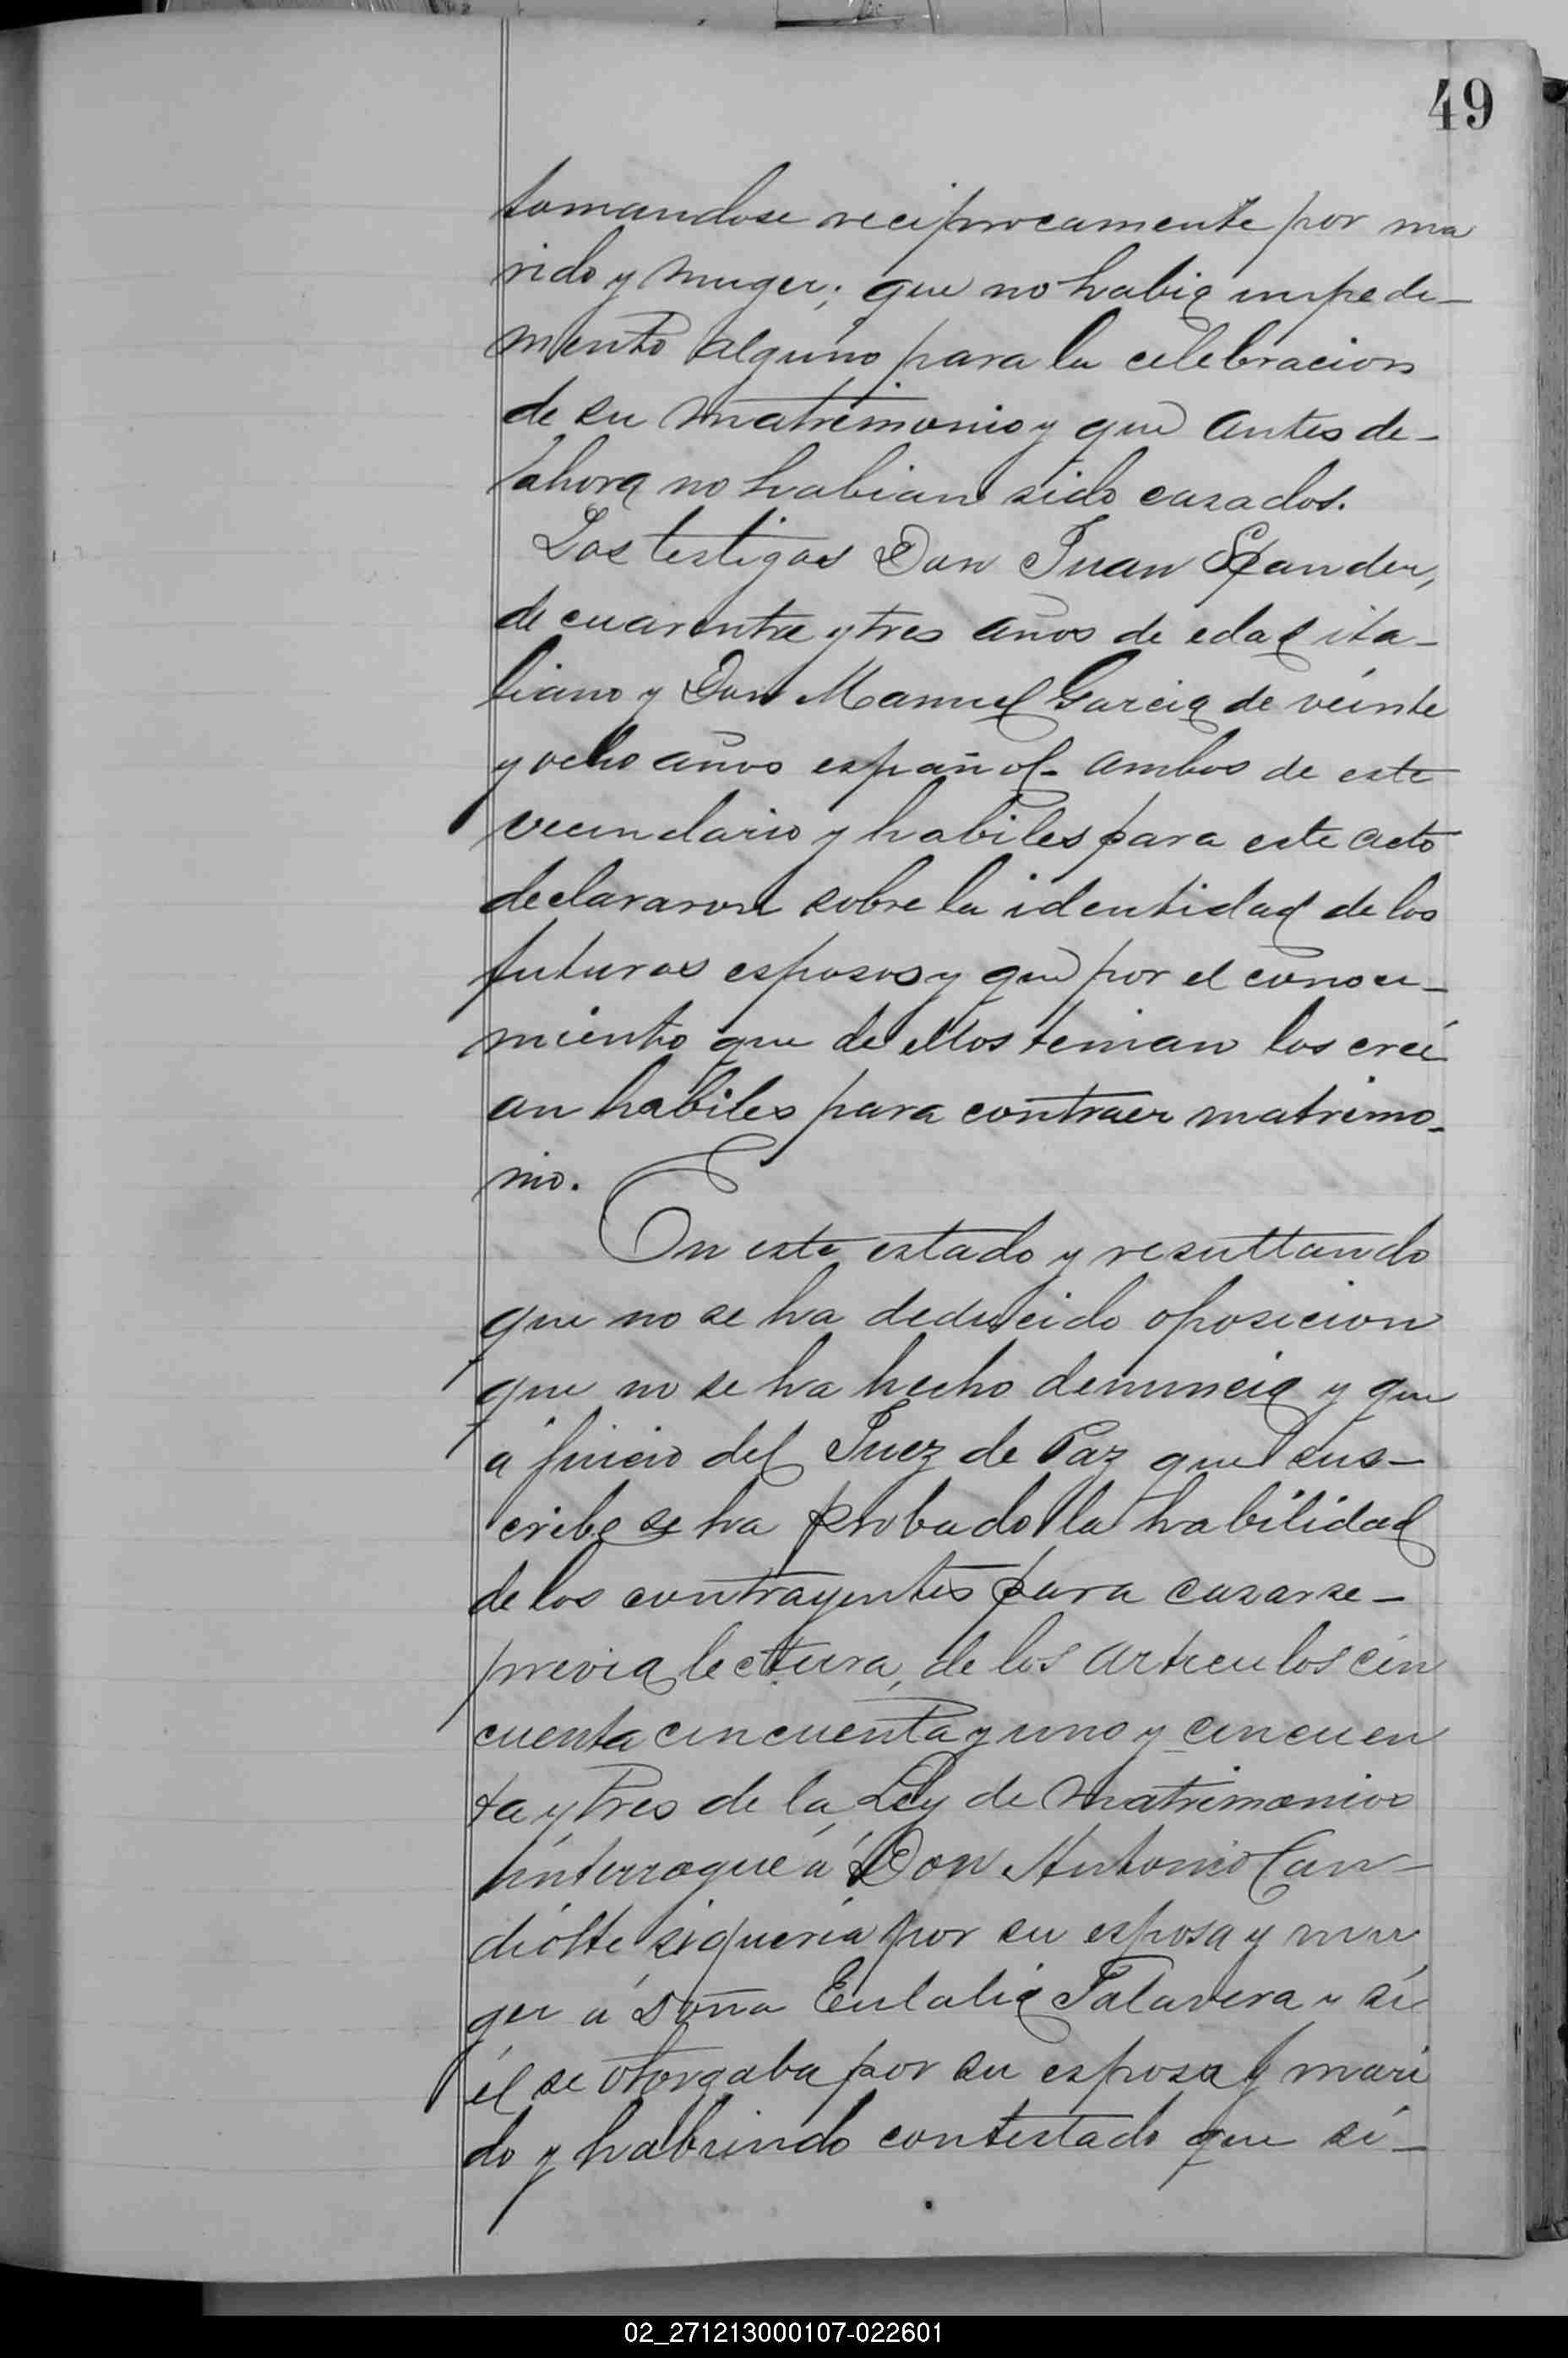 49
tomandose reciprocamente por ma
rido y muger; que no habia impedi-
mento alguno para la celebracion
de su matrimonio y que antes de-
ahora no habian sido casados.
Los testigos Don Juan
de cuarenta y tres años de edad ita-
liano y Don Manuel Garcia de veinte
y ocho años español- ambos de este
vecindario y habiles para este acto
declararon sobre la identidad de los
futuros esposos y que por el conoci-
miento que de ellos tenian los creí
an habiles para contraer matrimo-
nio.
En este estado y resultando
que no se ha deducido oposicion
que no se ha hecho denuncia y que
a juicio del Juez de Paz que sus-
cribe se ha probado la habilidad
de los contrayentes para casarse-
previa lectura, de los articulos cin
cuenta cincuenta y uno y cincuen
ta y tres de la Ley de Matrimonios
interrogué á Don Antonio Can-
diotte si queria por su esposa y mu
ger á Doña Eulalia Talavera y sí
él se otorgaba por su esposo y mari
do y habiendo contestado que sí-
02_271213000107-022601